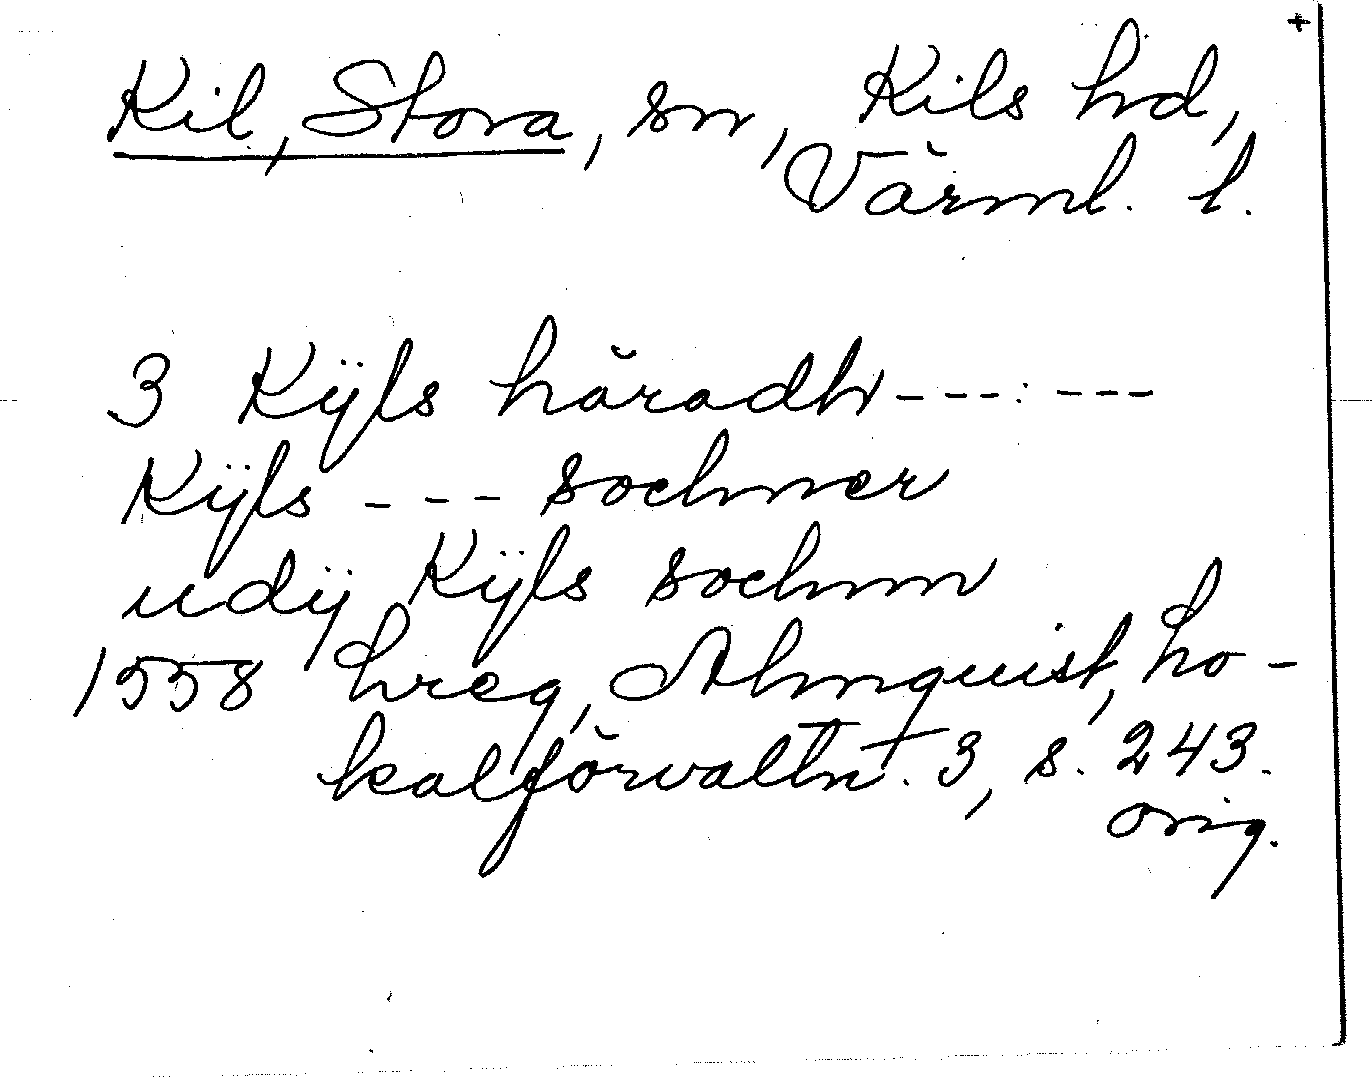 +
Kil, Stora, sn, Kils hd,
Värml. l.
3 Kÿls häradh ---:---
Kÿls --- sochner
udÿ Kÿls sochnn
1558 hreg, Almquist, lo-
kalförvaltn. 3, s. 243.
orig.